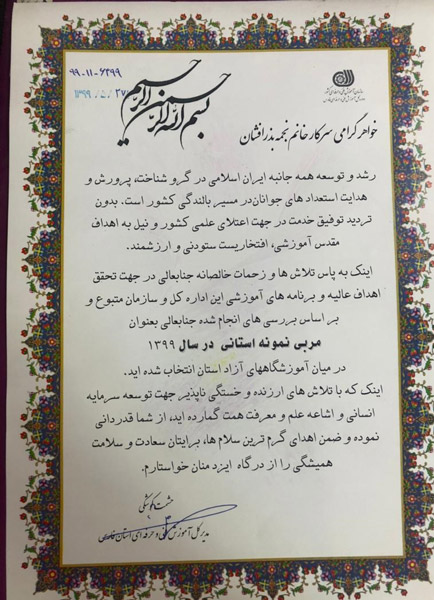 ۹۹-۱۱-۶۴۹۹
بسم الله الرحمن الرحیم
خواهر گرامی سرکار خانم نجمه بذرافشان
رشد و توسعه همه جانبه ایران اسلامی در گرو شناخت، پرورش و
هدایت استعداد های جوانان در مسیر بالندگی کشور است. بدون
تردید توفیق خدمت در جهت اعتلای علمی کشور و نیل به اهداف
مقدس آموزشی، افتخاریست ستودنی و ارزشمند.
اینک به پاس تلاش ها و زحمات خالصانه جنابعالی در جهت تحقق
اهداف عالیه و برنامه های آموزشی این اداره کل و سازمان متبوع و
بر اساس بررسی های انجام شده جنابعالی بعنوان
مربی نمونه استانی در سال ۱۳۹۹
در میان آموزشگاههای آزاد استان انتخاب شده اید.
اینک که با تلاش های ارزنده و خستگی ناپذیر جهت توسعه سرمایه
انسانی و اشاعه علم و معرفت همت گمارده اید، از شما قدردانی
نموده و ضمن اهدای گرم ترین سلام ها، برایتان سعادت و سلامت
همیشگی را از درگاه ایزد منان خواستارم.
مدیر کل آموزش فنی و حرفه ای استان فارس